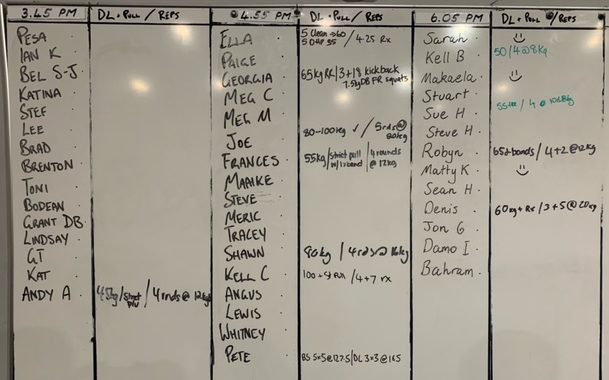 3.45 PM DL + PULL / REPS
PESA
IAN K
BEL S-J
KATINA
STEF
LEE
BRAD
BRENTON
TONI
BODEAN
GRANT DB
LINDSAY
GT
KAT
ANDY A 45kg / Strict / 4 rnds @ 12kg
4.55 PM DL + PULL / REPS
ELLA 5 Clean → 60 / 4.25 Rx
PAIGE
GEORGIA 65kg RX / 3+18 kickback
7.5kg DB FR squats
MEG C
MEG M
JOE 80-100kg ✓ / 5rds @
FRANCES 55kg / strict pull / 4 rounds
@ 12kg
MAAIKE
STEVE
MERIC
TRACEY
SHAWN 90kg / 4 rds @ 16kg
KELL C 100 + St Pull / 4+7 rx
ANGUS
LEWIS
WHITNEY
PETE BS 5x5 @ 127.5 / DL 3x3 @ 165
6.05 PM DL + PULL / REPS
Sarah
Kell B 50 / 4 @ 8kg
Makaela
Stuart
Sue H
Steve H
Robyn 65 + bands / 4+2 @ 12kg
Matty K
Sean H
Denis 60kg + Rx / 3+5 @ 20kg
Jon G
Damo I
Bahram